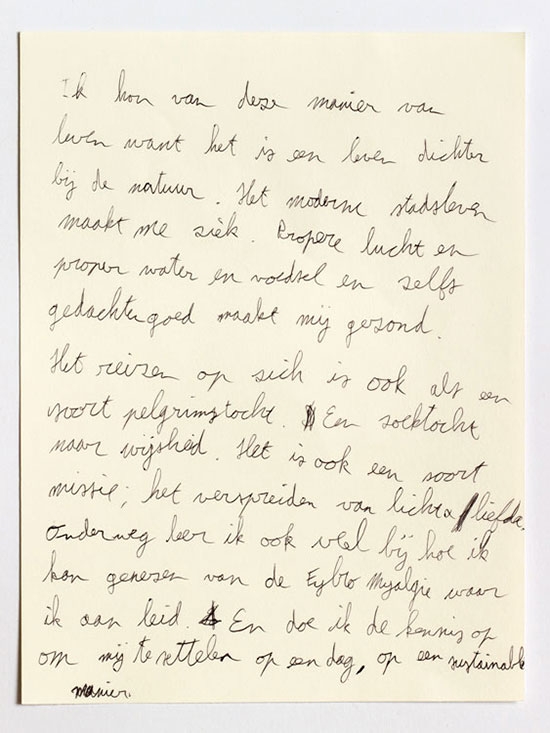 Ik hou van deze manier van
leven want het is een leven dichter
bij de natuur. Het moderne stadsleven
maakt me ziek. Propere lucht en
proper water en voedsel en zelfs
gedachtengoed maakt mij gezond.
Het reizen op zich is ook als een
soort pelgrimstocht. Een zoektocht
naar wijsheid. Het is ook een soort
missie; het verspreiden van licht & liefde.
Onderweg leer ik ook veel bij hoe ik
kan genezen van de Fybro Myalgie waar
ik aan leid. En doe ik de kennis op
om mij te settelen op een dag, op een sustainable
manier.